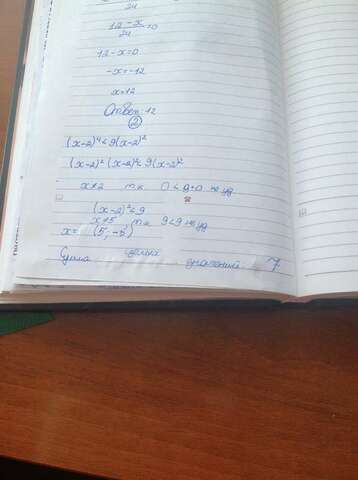 24
12-x/24=0
12-x=0
-x=-12
x=12
Ответ: 12
2
(x-2)⁴<9(x-2)²
(x-2)²(x-2)²<9(x-2)²
x≠2 т.к 0<9·0 не уд
(x-2)²<9
x≠5 т.к 9<9 не уд
x= (5; -5)
Сумма целых значений 7